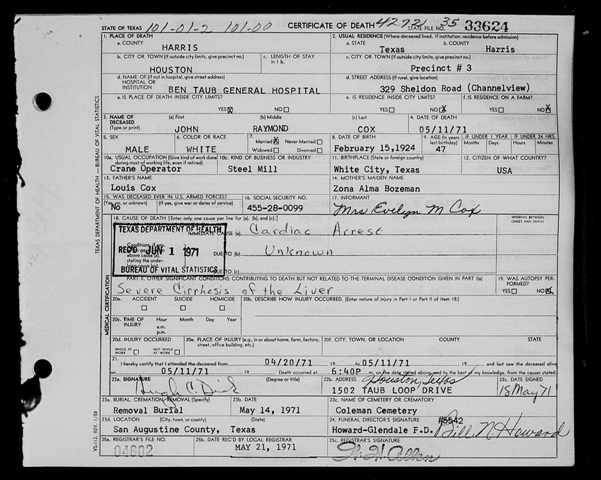 STATE OF TEXAS 101-01-2 101-00 CERTIFICATE OF DEATH 42721 35 STATE FILE NO. 33624
1. PLACE OF DEATH 2. USUAL RESIDENCE (Where deceased lived. If institution: residence before admission)
a. COUNTY a. STATE b. COUNTY
HARRIS Texas Harris
b. CITY OR TOWN (If outside city limits, give precinct no.) c. LENGTH OF STAY in 1 b. c. CITY OR TOWN (If outside city limits, give precinct no.)
HOUSTON Precinct # 3
d. NAME OF (If not in hospital, give street address) HOSPITAL OR INSTITUTION d. STREET ADDRESS (If rural, give location)
BEN TAUB GENERAL HOSPITAL 329 Sheldon Road (Channelview)
e. IS PLACE OF DEATH INSIDE CITY LIMITS? e. IS RESIDENCE INSIDE CITY LIMITS? f. IS RESIDENCE ON A FARM?
YES☒ NO☐ YES☐ NO☒ YES☐ NO☒
3. NAME OF DECEASED (Type or print) (a) First (b) Middle (c) Last 4. DATE OF DEATH
JOHN RAYMOND COX 05/11/71
5. SEX 6. COLOR OR RACE 7. Married☒ Never Married☐ 8. DATE OF BIRTH 9. AGE (In years last birthday) IF UNDER 1 YEAR IF UNDER 24 HRS.
MALE WHITE Widowed☐ Divorced☐ February 15,1924 47
10a. USUAL OCCUPATION (Give kind of work done during most of working life, even if retired) 10b. KIND OF BUSINESS OR INDUSTRY 11. BIRTHPLACE (State or foreign country) 12. CITIZEN OF WHAT COUNTRY?
Crane Operator Steel Mill White City, Texas USA
13. FATHER'S NAME 14. MOTHER'S MAIDEN NAME
Louis Cox Zona Alma Bozeman
15. WAS DECEASED EVER IN U.S. ARMED FORCES? 16. SOCIAL SECURITY NO. 17. INFORMANT
No 455-28-0099 Mrs. Evelyn M Cox
18. CAUSE OF DEATH [Enter only one cause per line for (a), (b), and (c).] INTERVAL BETWEEN ONSET AND DEATH
TEXAS DEPARTMENT OF HEALTH Cardiac Arrest
REC'D JUN 1 1971 Unknown
BUREAU OF VITAL STATISTICS
PART II. OTHER SIGNIFICANT CONDITIONS CONTRIBUTING TO DEATH BUT NOT RELATED TO THE TERMINAL DISEASE CONDITION GIVEN IN PART I(a) 19. WAS AUTOPSY PERFORMED?
Severe Cirrhosis of the Liver YES☐ NO☒
20a. ACCIDENT SUICIDE HOMICIDE 20b. DESCRIBE HOW INJURY OCCURRED. (Enter nature of injury in Part I or Part II of item 18.)
20c. TIME OF INJURY Hour Month Day Year
a.m.
p.m.
20d. INJURY OCCURRED 20e. PLACE OF INJURY (e.g., in or about home, farm, factory, street, office building, etc.) 20f. CITY, TOWN, OR LOCATION COUNTY STATE
WHILE AT WORK ☐ NOT WHILE AT WORK ☐
21. I hereby certify that I attended the deceased from 04/20/71 to 05/11/71 and last saw the deceased alive
on 05/11/71 Death occurred at 6:40P m. on the date stated above, and to the best of my knowledge, from the causes stated.
22a. SIGNATURE (Degree or title) 22b. ADDRESS Houston 22c. DATE SIGNED
1502 TAUB LOOP DRIVE 18 May 71
23a. BURIAL, CREMATION, REMOVAL (Specify) 23b. DATE 23c. NAME OF CEMETERY OR CREMATORY
Removal Burial May 14, 1971 Coleman Cemetery
23d. LOCATION (City, town, or county) (State) 24. FUNERAL DIRECTOR'S SIGNATURE #5542
San Augustine County, Texas Howard-Glendale F.D. Bill N Howard
25a. REGISTRAR'S FILE NO. 25b. DATE REC'D BY LOCAL REGISTRAR 25c. REGISTRAR'S SIGNATURE
04602 MAY 21, 1971
TEXAS DEPARTMENT OF HEALTH - BUREAU OF VITAL STATISTICS
MEDICAL CERTIFICATION